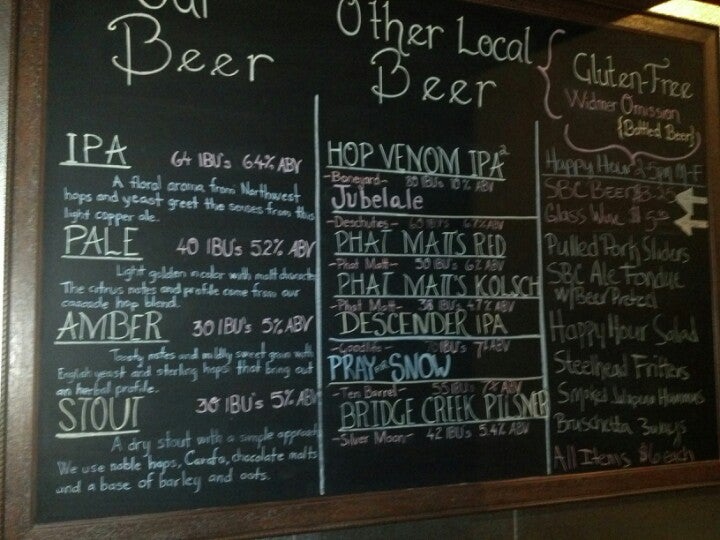 Our
Beer
IPA 64 IBU's 6.4% ABV
A floral aroma from Northwest
hops and yeast greet the senses from this
light copper ale.
PALE 40 IBU's 5.2% ABV
Light golden in color with malt character
The citrus notes and profile come from our
cascade hop blend.
AMBER 30 IBU's 5% ABV
Toasty notes and mildly sweet grain with
English yeast and sterling hops that bring out
an herbal profile.
STOUT 30 IBU's 5% ABV
A dry stout with a simple approach
We use noble hops, Carafa, chocolate malts
and a base of barley and oats.
Other Local
Beer
HOP VENOM IPA²
-Boneyard- 80 IBU's 10% ABV
Jubelale
-Deschutes- 65 IBU's 6.7% ABV
PHAT MATT'S RED
-Phat Matt- 50 IBU's 6% ABV
PHAT MATT'S KOLSCH
-Phat Matt- 38 IBU's 4.7% ABV
DESCENDER IPA
-Goodlife- 70 IBU's 7% ABV
PRAY for SNOW
-Ten Barrel- 55 IBU's 7% ABV
BRIDGE CREEK PILSNER
-Silver Moon- 42 IBU's 5.4% ABV
Gluten-Free
Widmer Omission
{Bottled Beer}
Happy Hour 2-5pm M-F
SBC Beer
Glass Wine $5.00
Pulled Pork Sliders
SBC Ale Fondue
w/Beer Pretzel
Happy Hour Salad
Steelhead Fritters
Smoked Jalapeno Hummus
Bruschetta 3 ways
All Items $6 each